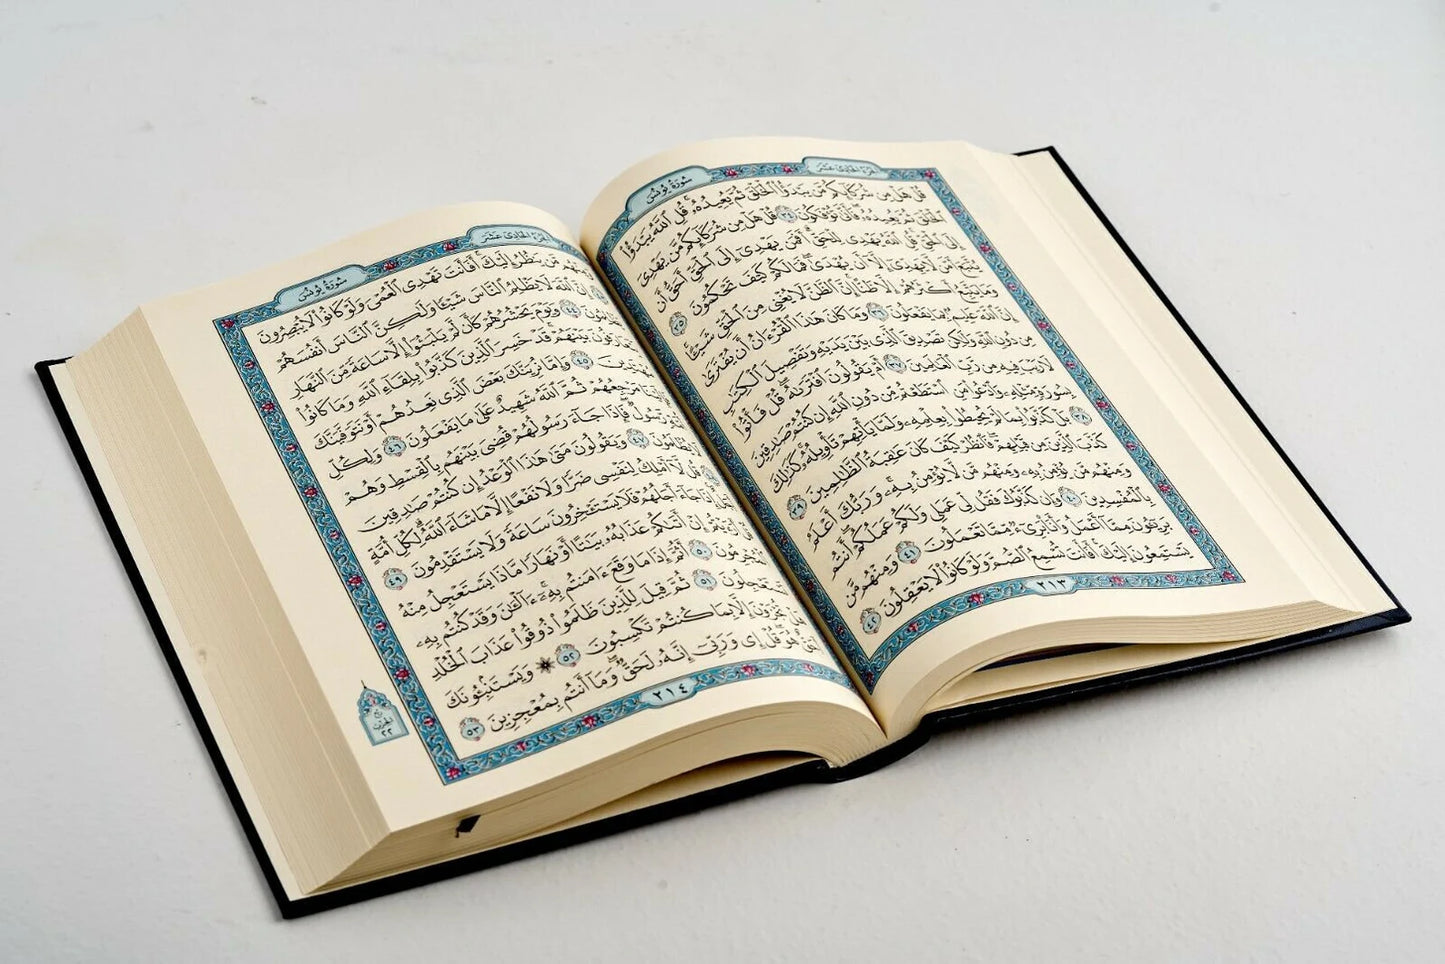 سُورَةُ يُونُسَ
الجُزْءُ الحَادِىَ عَشَرَ
قُلْ هَلْ مِن شُرَكَآئِكُم مَّن يَبْدَؤُا۟ ٱلْخَلْقَ ثُمَّ يُعِيدُهُۥ ۚ قُلِ ٱللَّهُ يَبْدَؤُا۟
ٱلْخَلْقَ ثُمَّ يُعِيدُهُۥ ۖ فَأَنَّىٰ تُؤْفَكُونَ ٣٤ قُلْ هَلْ مِن شُرَكَآئِكُم مَّن يَهْدِىٓ
إِلَى ٱلْحَقِّ ۚ قُلِ ٱللَّهُ يَهْدِى لِلْحَقِّ ۗ أَفَمَن يَهْدِىٓ إِلَى ٱلْحَقِّ أَحَقُّ أَن
يُتَّبَعَ أَمَّن لَّا يَهِدِّىٓ إِلَّآ أَن يُهْدَىٰ ۖ فَمَا لَكُمْ كَيْفَ تَحْكُمُونَ ٣٥
وَمَا يَتَّبِعُ أَكْثَرُهُمْ إِلَّا ظَنًّا ۚ إِنَّ ٱلظَّنَّ لَا يُغْنِى مِنَ ٱلْحَقِّ شَيْـًٔا ۚ
إِنَّ ٱللَّهَ عَلِيمٌۢ بِمَا يَفْعَلُونَ ٣٦ وَمَا كَانَ هَٰذَا ٱلْقُرْءَانُ أَن يُفْتَرَىٰ
مِن دُونِ ٱللَّهِ وَلَٰكِن تَصْدِيقَ ٱلَّذِى بَيْنَ يَدَيْهِ وَتَفْصِيلَ ٱلْكِتَٰبِ
لَا رَيْبَ فِيهِ مِن رَّبِّ ٱلْعَٰلَمِينَ ٣٧ أَمْ يَقُولُونَ ٱفْتَرَىٰهُ ۖ قُلْ فَأْتُوا۟
بِسُورَةٍ مِّثْلِهِۦ وَٱدْعُوا۟ مَنِ ٱسْتَطَعْتُم مِّن دُونِ ٱللَّهِ إِن كُنتُمْ صَٰدِقِينَ ٣٨
بَلْ كَذَّبُوا۟ بِمَا لَمْ يُحِيطُوا۟ بِعِلْمِهِۦ وَلَمَّا يَأْتِهِمْ تَأْوِيلُهُۥ ۚ كَذَٰلِكَ
كَذَّبَ ٱلَّذِينَ مِن قَبْلِهِمْ ۖ فَٱنظُرْ كَيْفَ كَانَ عَٰقِبَةُ ٱلظَّٰلِمِينَ ٣٩
وَمِنْهُم مَّن يُؤْمِنُ بِهِۦ وَمِنْهُم مَّن لَّا يُؤْمِنُ بِهِۦ ۚ وَرَبُّكَ أَعْلَمُ
بِٱلْمُفْسِدِينَ ٤٠ وَإِن كَذَّبُوكَ فَقُل لِّى عَمَلِى وَلَكُمْ عَمَلُكُمْ ۖ أَنتُم
بَرِيٓـُٔونَ مِمَّآ أَعْمَلُ وَأَنَا۠ بَرِىٓءٌ مِّمَّا تَعْمَلُونَ ٤١ وَمِنْهُم مَّن
يَسْتَمِعُونَ إِلَيْكَ ۚ أَفَأَنتَ تُسْمِعُ ٱلصُّمَّ وَلَوْ كَانُوا۟ لَا يَعْقِلُونَ ٤٢
٢١٣
الجُزْءُ الحَادِىَ عَشَرَ
سُورَةُ يُونُسَ
مَّن يَنظُرُ إِلَيْكَ ۚ أَفَأَنتَ تَهْدِى ٱلْعُمْىَ وَلَوْ كَانُوا۟ لَا يُبْصِرُونَ
إِنَّ ٱللَّهَ لَا يَظْلِمُ ٱلنَّاسَ شَيْـًٔا وَلَٰكِنَّ ٱلنَّاسَ أَنفُسَهُمْ
٤٤ وَيَوْمَ يَحْشُرُهُمْ كَأَن لَّمْ يَلْبَثُوٓا۟ إِلَّا سَاعَةً مِّنَ ٱلنَّهَارِ
بَيْنَهُمْ ۚ قَدْ خَسِرَ ٱلَّذِينَ كَذَّبُوا۟ بِلِقَآءِ ٱللَّهِ وَمَا كَانُوا۟
٤٥ وَإِمَّا نُرِيَنَّكَ بَعْضَ ٱلَّذِى نَعِدُهُمْ أَوْ نَتَوَفَّيَنَّكَ
مَرْجِعُهُمْ ثُمَّ ٱللَّهُ شَهِيدٌ عَلَىٰ مَا يَفْعَلُونَ ٤٦ وَلِكُلِّ
رَّسُولٌ ۖ فَإِذَا جَآءَ رَسُولُهُمْ قُضِىَ بَيْنَهُم بِٱلْقِسْطِ وَهُمْ
٤٧ وَيَقُولُونَ مَتَىٰ هَٰذَا ٱلْوَعْدُ إِن كُنتُمْ صَٰدِقِينَ
قُل لَّآ أَمْلِكُ لِنَفْسِى ضَرًّا وَلَا نَفْعًا إِلَّا مَا شَآءَ ٱللَّهُ ۗ لِكُلِّ أُمَّةٍ
إِذَا جَآءَ أَجَلُهُمْ فَلَا يَسْتَـْٔخِرُونَ سَاعَةً ۖ وَلَا يَسْتَقْدِمُونَ ٤٩
قُلْ أَرَءَيْتُمْ إِنْ أَتَىٰكُمْ عَذَابُهُۥ بَيَٰتًا أَوْ نَهَارًا مَّاذَا يَسْتَعْجِلُ مِنْهُ
ٱلْمُجْرِمُونَ ٥٠ أَثُمَّ إِذَا مَا وَقَعَ ءَامَنتُم بِهِۦٓ ۚ ءَآلْـَٰٔنَ وَقَدْ كُنتُم بِهِۦ
تَسْتَعْجِلُونَ ٥١ ثُمَّ قِيلَ لِلَّذِينَ ظَلَمُوا۟ ذُوقُوا۟ عَذَابَ ٱلْخُلْدِ
هَلْ تُجْزَوْنَ إِلَّا بِمَا كُنتُمْ تَكْسِبُونَ ٥٢ ۞ وَيَسْتَنۢبِـُٔونَكَ
أَحَقٌّ هُوَ ۖ قُلْ إِى وَرَبِّىٓ إِنَّهُۥ لَحَقٌّ ۖ وَمَآ أَنتُم بِمُعْجِزِينَ ٥٣
الحزب
٢٢
٢١٤